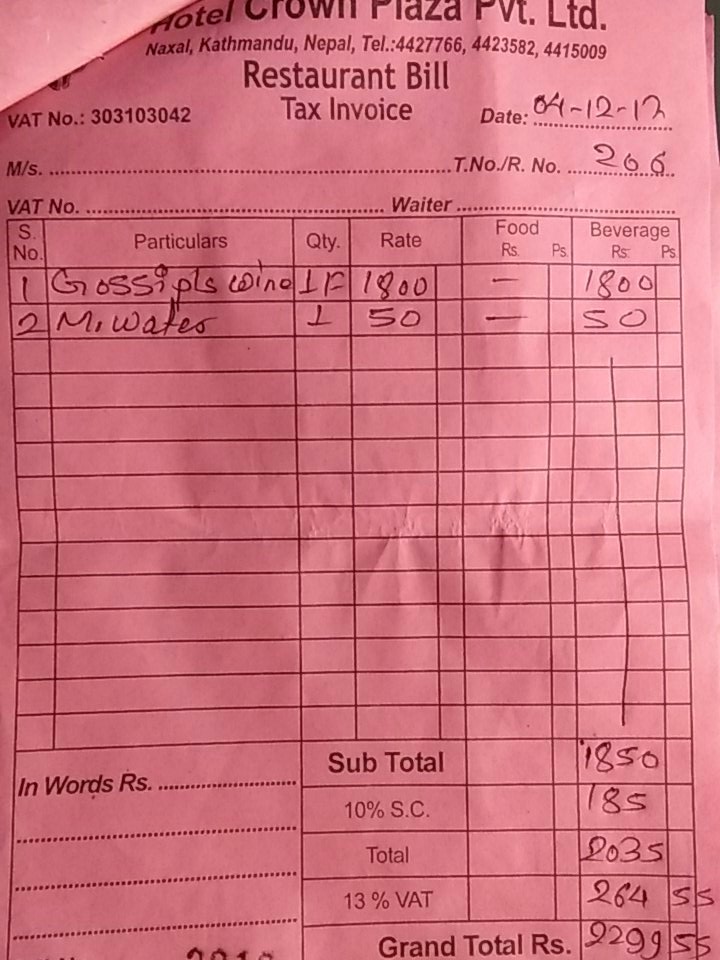 Hotel Crown Plaza Pvt. Ltd.
Naxal, Kathmandu, Nepal, Tel.:4427766, 4423582, 4415009
Restaurant Bill
VAT No.: 303103042 Tax Invoice Date: 04-12-17
M/s. T.No./R. No. 206
VAT No. Waiter
S. No. Particulars Qty. Rate Food Rs. Ps. Beverage Rs. Ps.
1 Gossips wine 1F 1800 — 1800
2 M. water 1 50 — 50
Sub Total 1850
In Words Rs.
10% S.C. 185
Total 2035
13 % VAT 264 55
Grand Total Rs. 2299 55